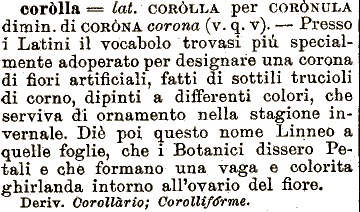 coròlla = lat. CORÒLLA per CORÒNULA
dimin. di CORÒNA corona (v. q. v). — Presso
i Latini il vocabolo trovasi più special-
mente adoperato per designare una corona
di fiori artificiali, fatti di sottili trucioli
di corno, dipinti a differenti colori, che
serviva di ornamento nella stagione in-
vernale. Diè poi questo nome Linneo a
quelle foglie, che i Botanici dissero Pe-
tali e che formano una vaga e colorita
ghirlanda intorno all'ovario del fiore.
Deriv. Corollàrio; Corollifórme.